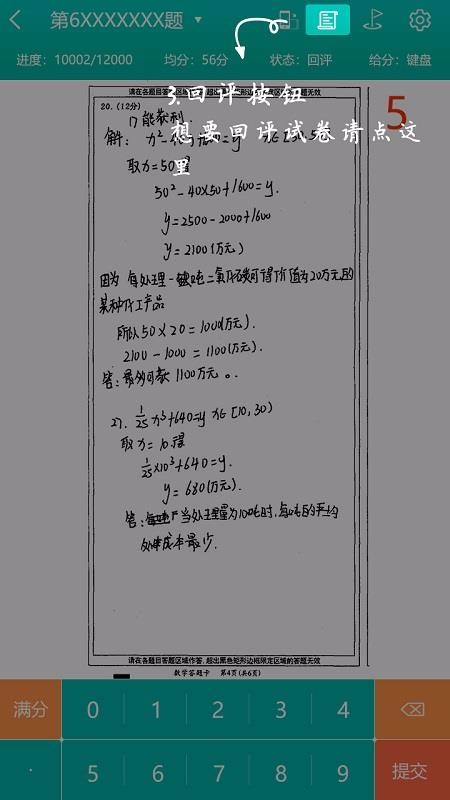 第6XXXXXXX题
进度：10002/12000 均分：56分 状态：回评 给分：键盘
请在各题目答题区域作答，超出黑色矩形边框限定区域的答题无效
5
3.回评按钮
想要回评试卷请点这
里
20.（12分）
1) 能获利.
解：
取x=50得
50²-40×50+1600=y.
y=2500-2000+1600
y=2100(万元)
因为 每处理一吨二氧化碳可得价值为20万元的
某种化工产品
所以50×20=1000(万元).
2100-1000=1100(万元).
答：最多可获1100万元。
2). 1/25 x³+640=y x∈[10,30)
取x=10.得
1/25×10³+640=y.
y=680(万元).
答：当处理量为10吨时，每吨的平均
处理成本最少.
请在各题目答题区域作答，超出黑色矩形边框限定区域的答题无效
数学答题卡 第4页(共6页)
满分 0 1 2 3 4
· 5 6 7 8 9 提交